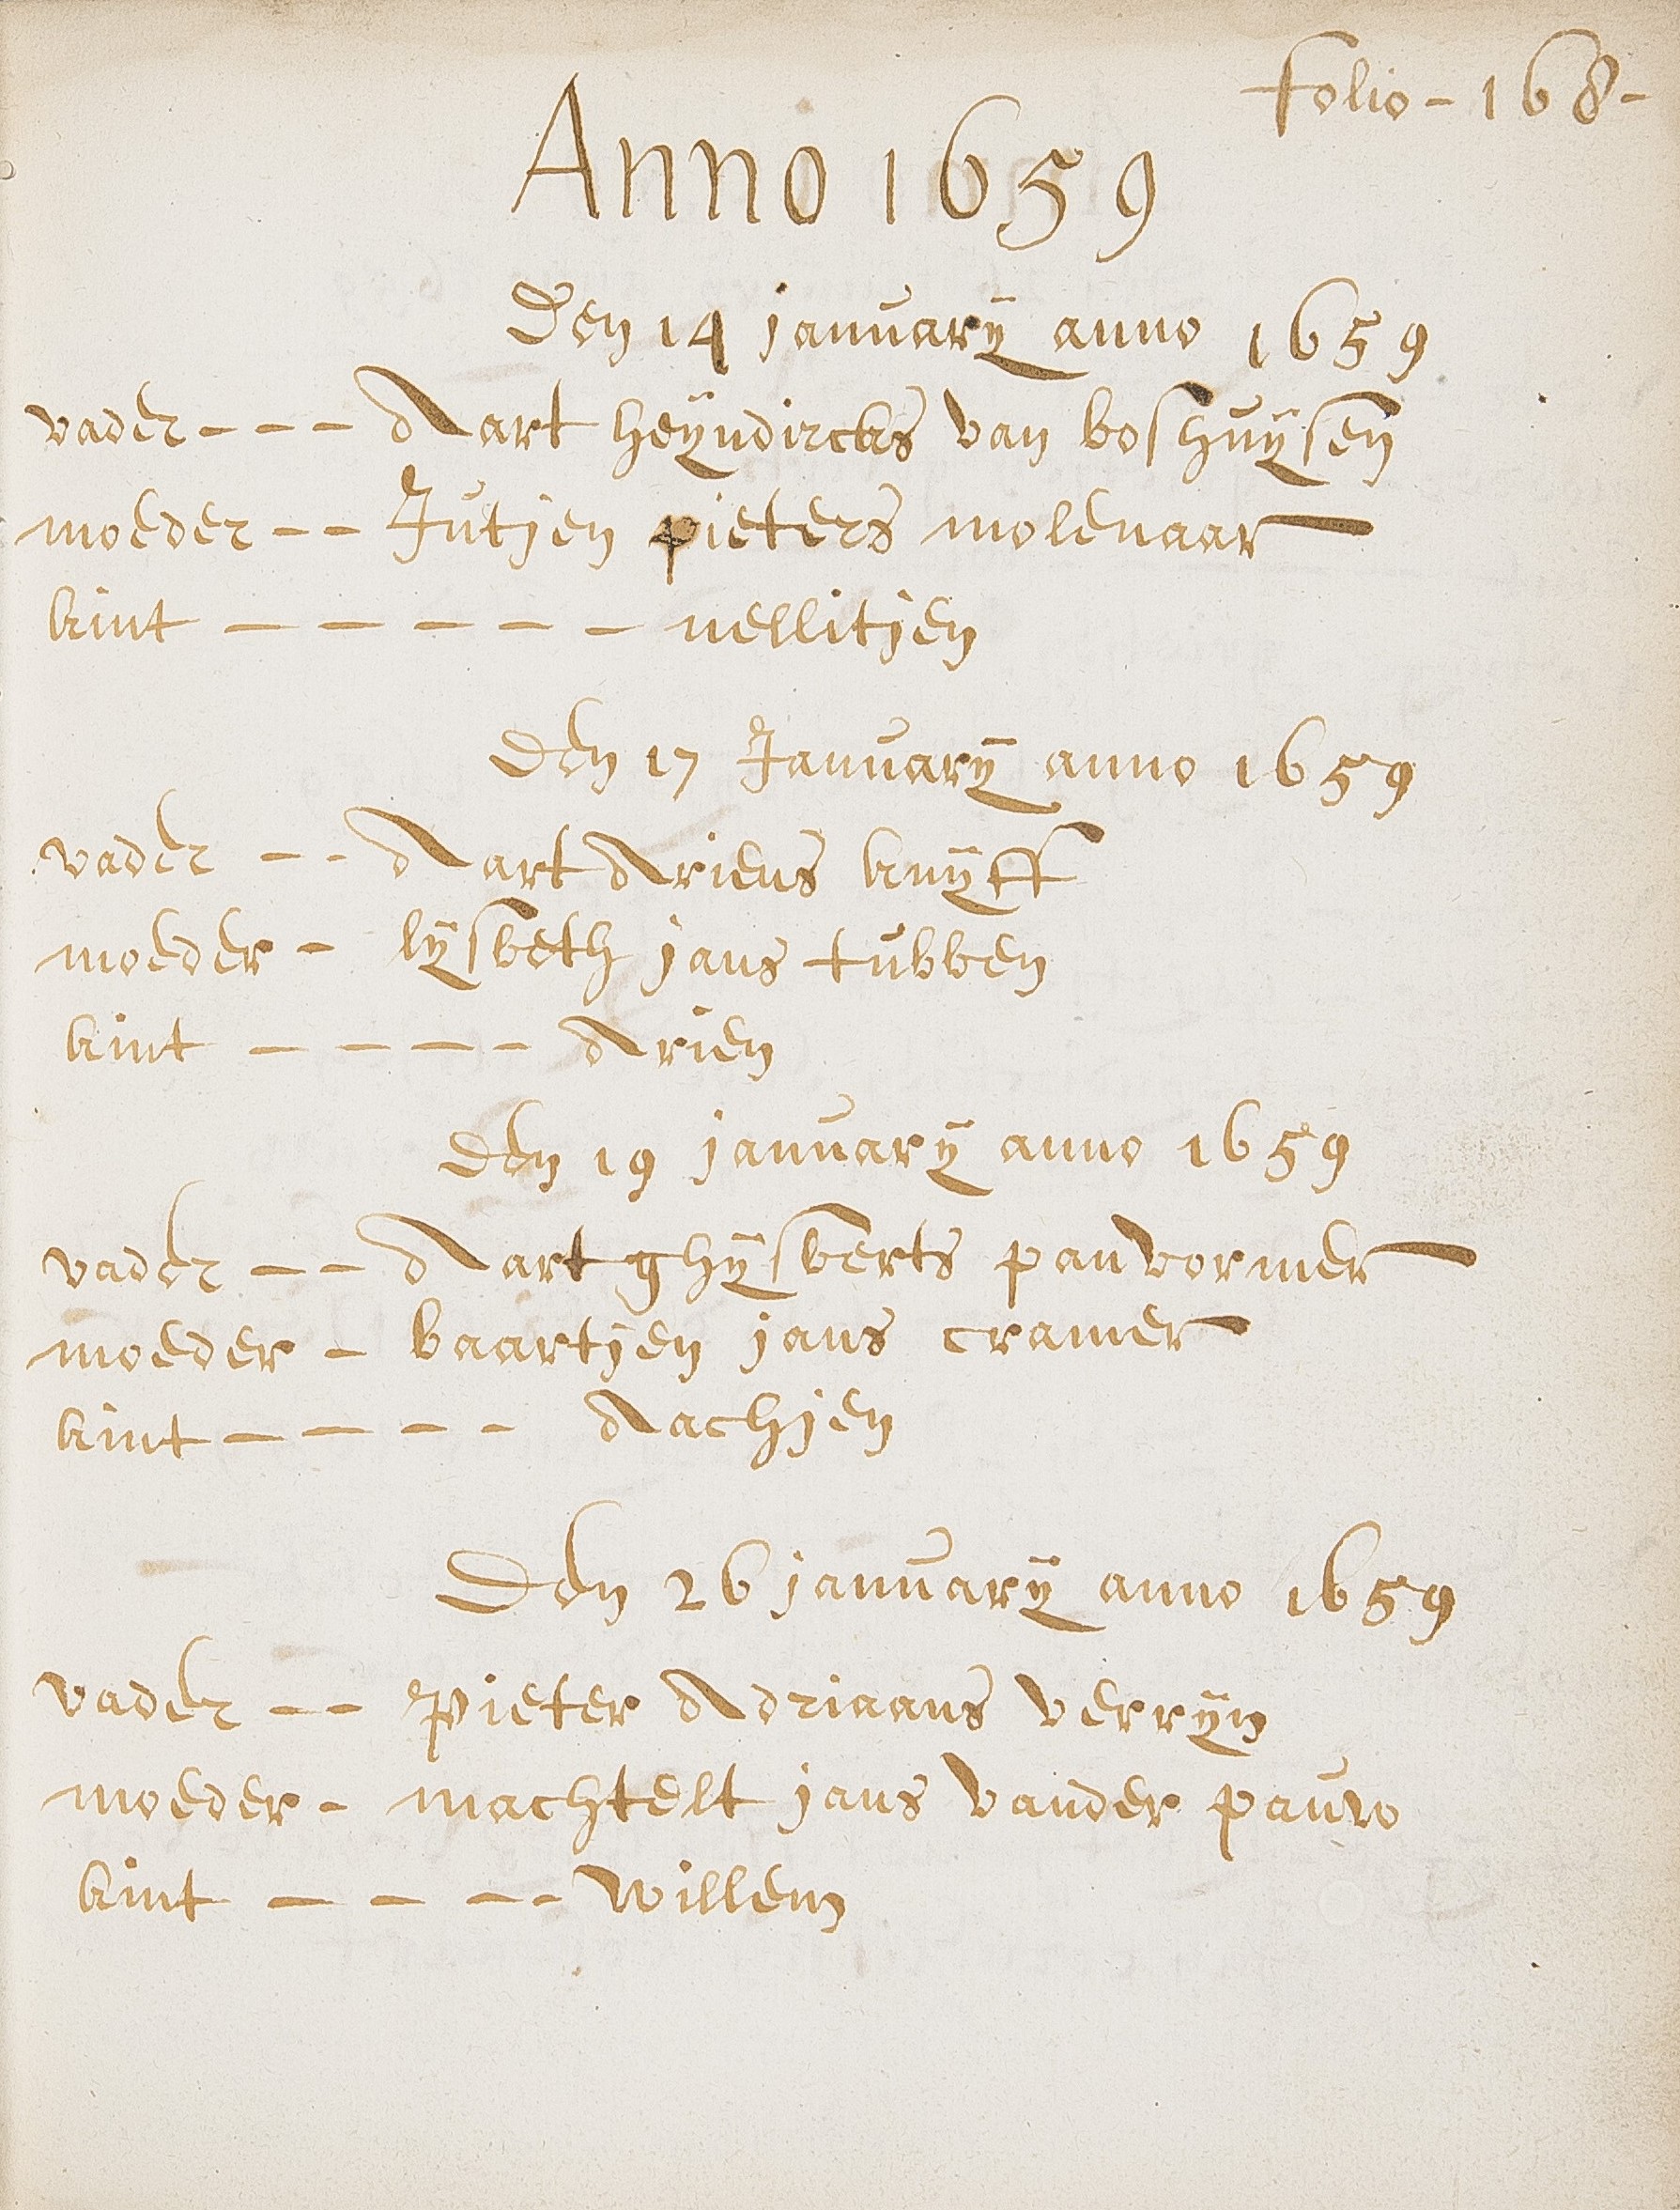 folio - 168 -
Anno 1659
Den 14 januarÿ anno 1659
vader - - - Aart heÿndircks van boshuÿsen
moeder - - Jutjen pieters molenaar
kint - - - - - nellitjen
Den 17 Januarÿ anno 1659
vader - - Aart Ariens knÿff
moeder - lÿsbeth jans tubben
kint - - - - Arien
Den 19 januarÿ anno 1659
vader - - Aart ghÿsberts panvormer
moeder - baartjen jans cramer
kint - - - - Aachjen
Den 26 januarÿ anno 1659
vader - - Pieter Adriaans verrÿn
moeder - machtelt jans vander pauw
kint - - - - willem